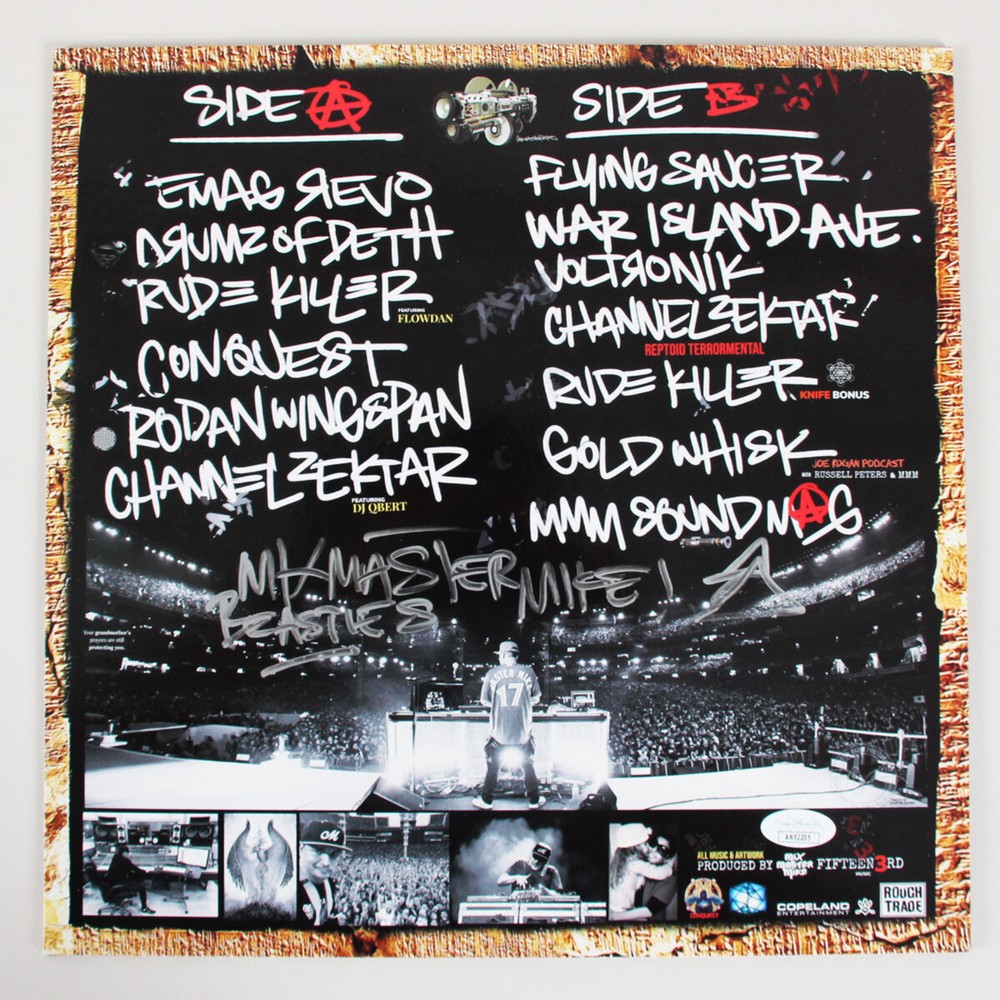 SIDE A
EMAG REVO
DRUMZ OF DETH
RUDE KILLER
FEATURING
FLOWDAN
CONQUEST
RODAN WINGSPAN
CHANNEL ZEKTAR
FEATURING
DJ QBERT
SIDE B
FLYING SAUCER
WAR ISLAND AVE.
VOLTRONIK
CHANNEL ZEKTAR
REPTOID TERRORMENTAL
RUDE KILLER
KNIFE BONUS
GOLD WHISK
JOE ROGAN PODCAST
WITH RUSSELL PETERS & MMM
MMM SOUND MAG
MIXMASTER MIKE!
BEASTIES
Your grandmother's
prayers are still
protecting you.
17
OM
AN52205
ALL MUSIC & ARTWORK
PRODUCED BY MIX MASTER MIKE FIFTEEN3RD
MUSIC
CONQUEST
COPELAND
ENTERTAINMENT
ROUGH
TRADE